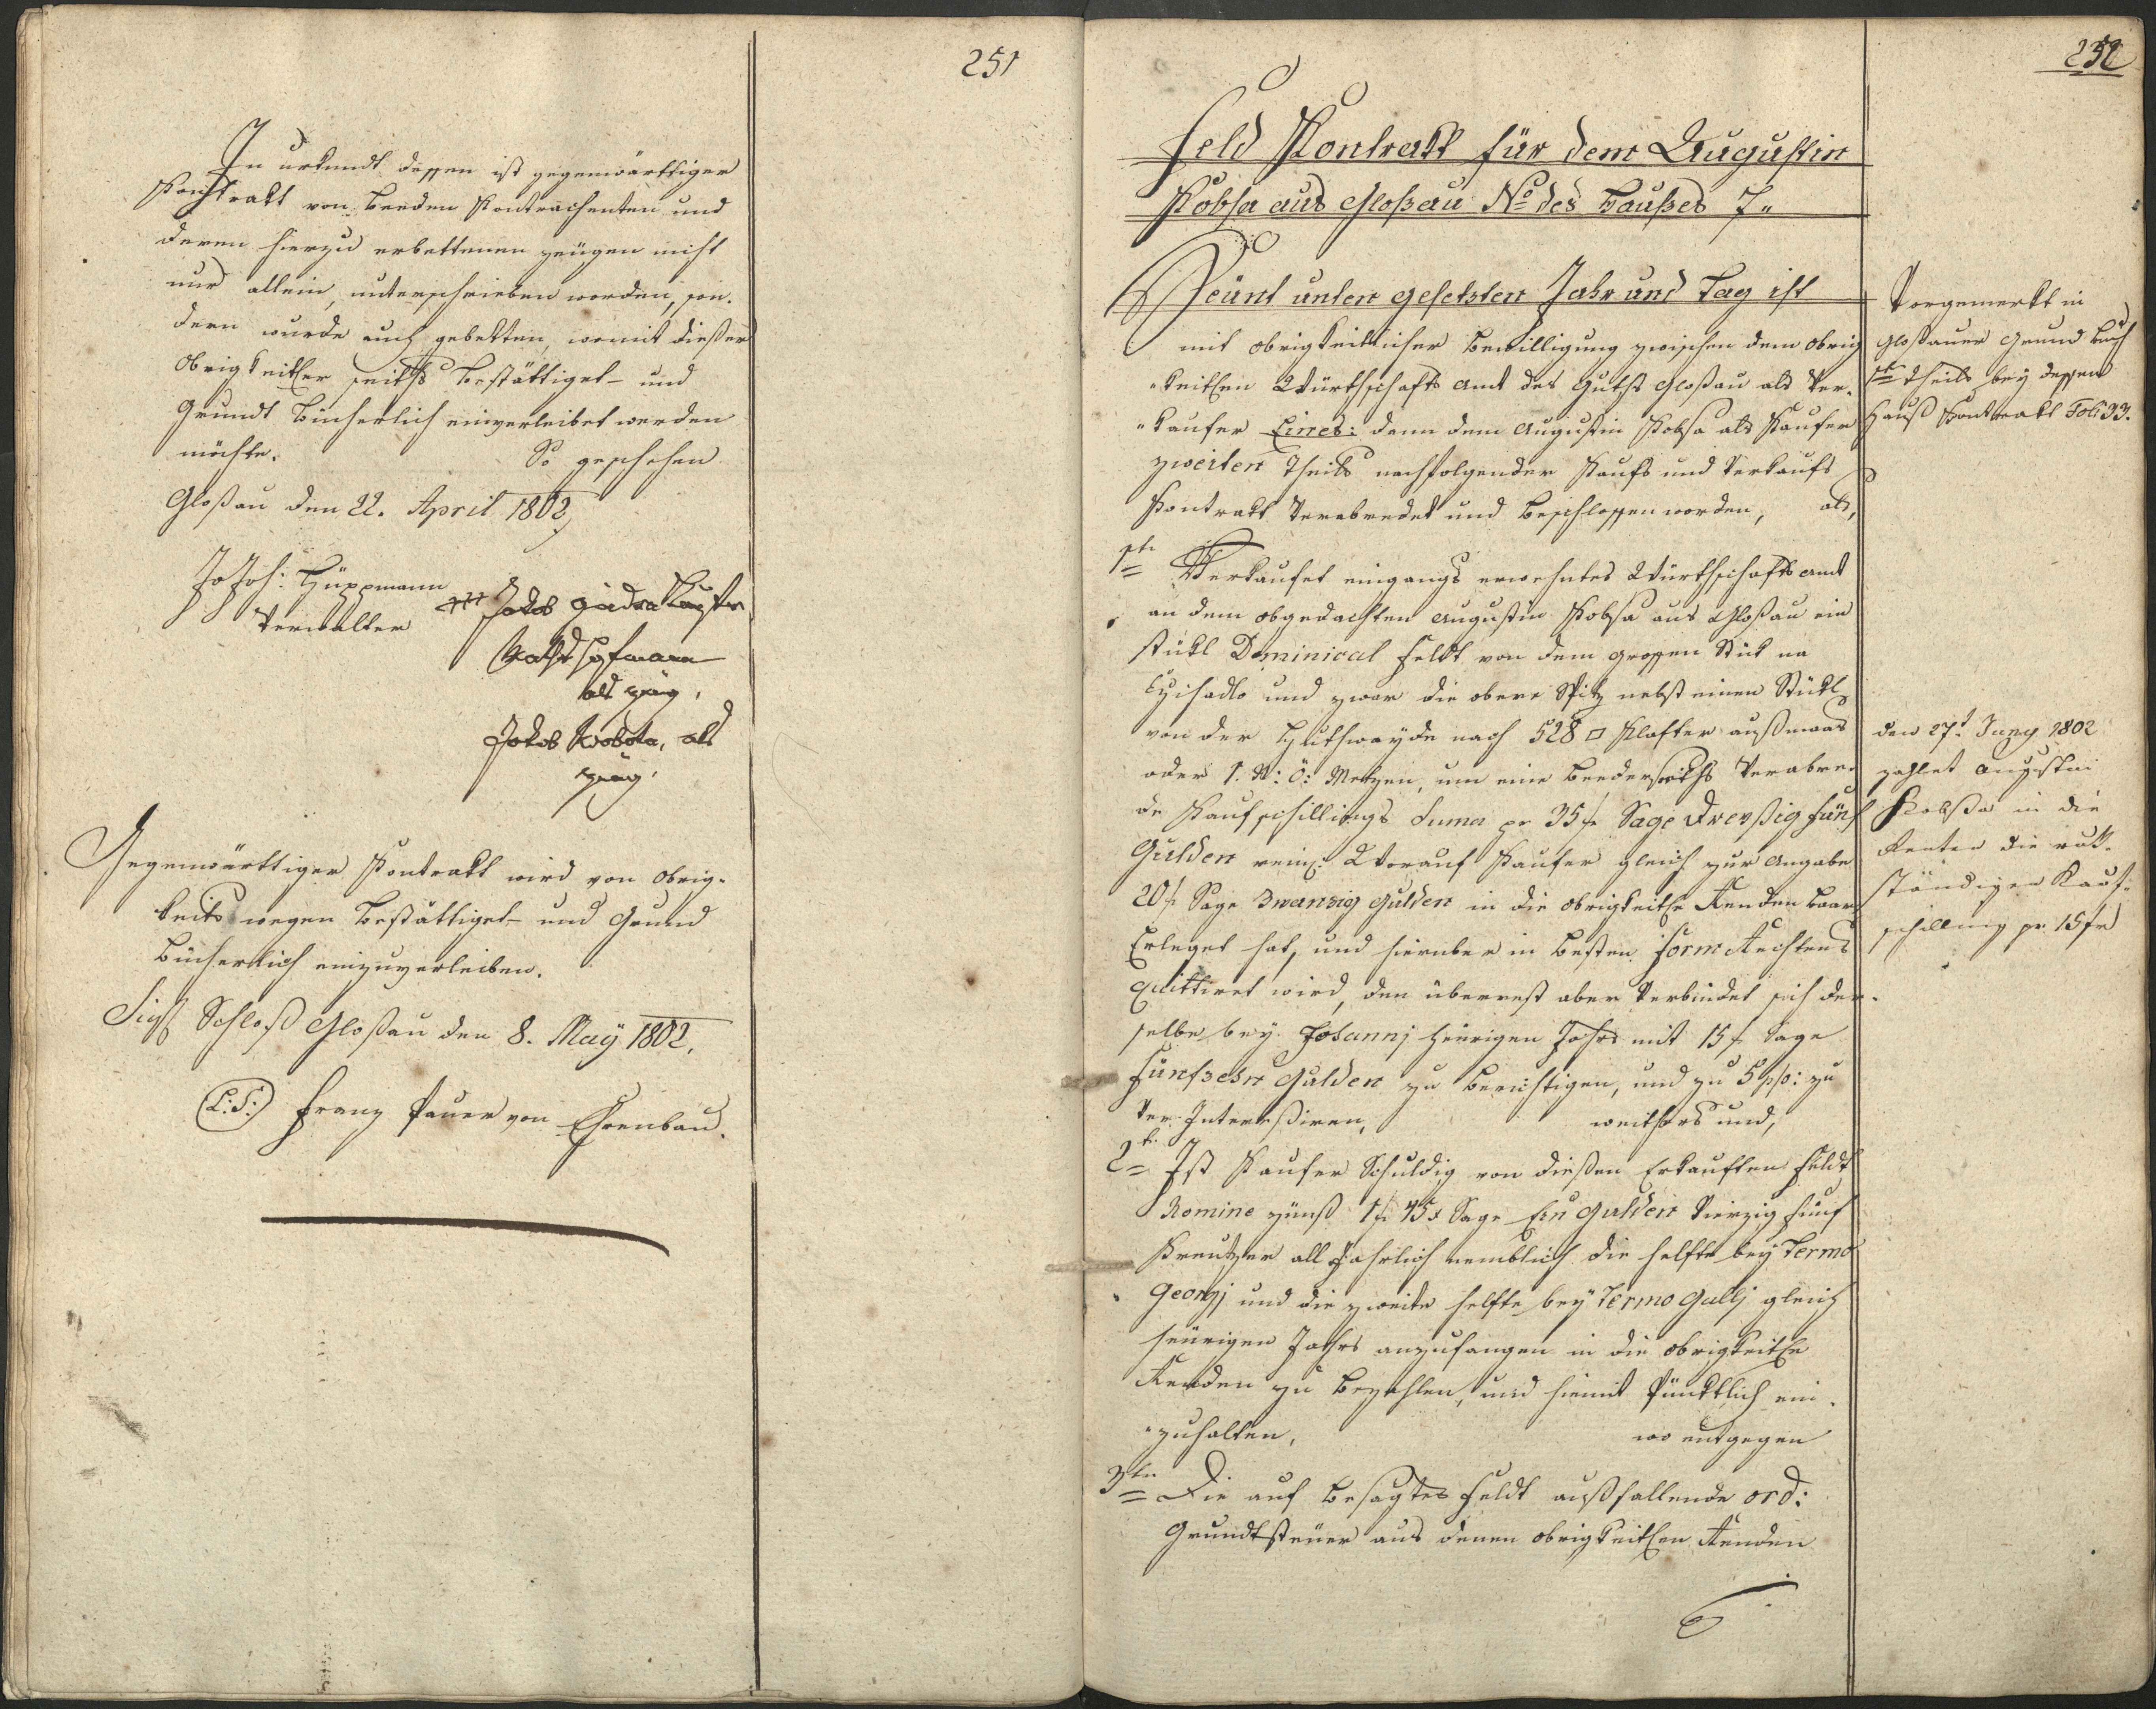 251
In urkundt dessen ist gegenwärttiger
Kontrakt von beeden Kontrachenten und
deren hierzu erbettenen zeügen nicht
nur allein, unterschrieben worden, son-
dern wurde auch gebetten, womit dießer
Obrigkeitler seiths bestättiget- und
Grundt Bücherlich einverleibet werden
möchte. So geschehen
Gloßau den 22. April 1802
Joh: Hüppmann
Verwalter
+++ Jakob
als zeüg,
Jakob Wobola, als
zeüg,
Gegenwärttiger Kontrakt wird von obrig-
keits wegen bestättiget- und Grund
Bücherlich einzuverleiben.
Sigl Schloß Gloßau den 8. May 1802.
(L:S:) Franz Pauer von Ehrenbau.
252
Feld Kontrakt für dem Augustin
Kobsa aus Gloßau No des Haußes 7"
Heünt unten gesetzten Jahr und Tag ist
mit obrigkeitlicher Bewilligung zwischen dem obrig
"keitlen Würthschafts Amt des Guths Gloßau als Ver-
"kaufer Eines: dann dem Augustin Kobsa als Kaufer
zweiten Theils nachfolgender Kaufs und Verkaufs
Kontrakt Verabredet und beschlossen worden, als,
1te Verkaufet eingangs erwehntes Würthschafts Amt
an dem obgedachten Augustin Kobsa aus Gloßau ein
stükl Dominical Feldt von dem grossen Stük na
und zwar die obere Spitz nebst einen Stükl
von der Huthwayde nach 528 □ Klafter außmaas
oder 1. N: Ö: Metzen, um eine beederseiths Verabre
de Kaufschillings Suma pr 35 f Sage Dreyßig fünf
Gulden rein: Worauf Kaufer gleich zur Angabe
20 f Sage Zwanzig Gulden in die obrigkeitle Renden baar
Erleget hat, und hierüber in besten Form Rechtens
Quittiret wird, den überrest aber Verbindet sich der-
selbe bey Johannj heürigen Jahrs mit 15 f Sage
Fünfzehn Gulden zu berichtigen, und zu 5 pto: zu
Ver Intereßiren, weithers und,
2te Ist Kaufer Schuldig von dießen Erkauften Feldt
Nomine zünß 1 f 45 x Sage Ein Gulden Vierzig fünf
Kreutzer all Jahrlich nemblich die helfte bey Termo
Georgj und die zweite helfte bey Termo Gallj gleich
heürigen Jahrs anzufangen in die obrigkeitle
Renden zu bezahlen, und hiemit Pünktlich ein-
"zuhalten, wo entgegen
3te Die auf besagtes Feldt außfallende ord:
Grundtsteüer aus denen obrigkeitlen Renden
Vorgemerkt in
Gloßauer Grund Buch
1te Theils bey dessen
Hauß Kontrakt Foli 33.
den 27t Juny 1802
zahlet Augustin
Kobsa in die
Renten die rük-
ständigen Kauf-
schilling pr 15 f